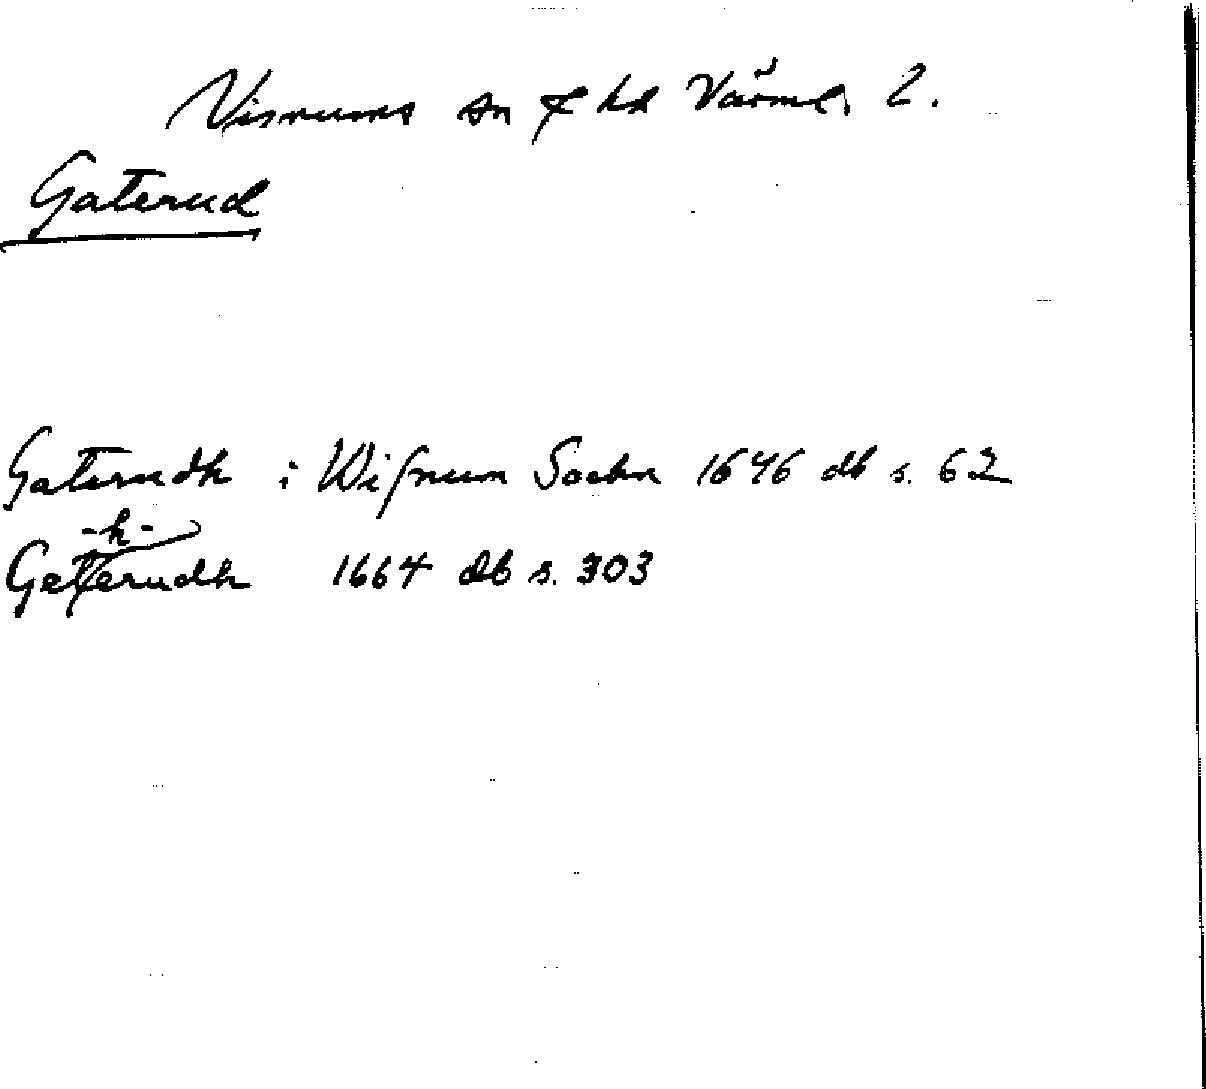 Visnums sn & hd Värml. l.
Gaterud
Gaterudh i Wisnum Sochn 1646 db s. 62
-h-
Getterudh 1664 db s. 303